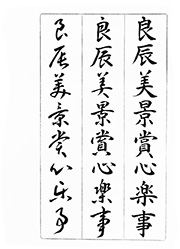 良辰美景賞心楽事
良辰美景賞心楽事
良辰美景賞心乐事